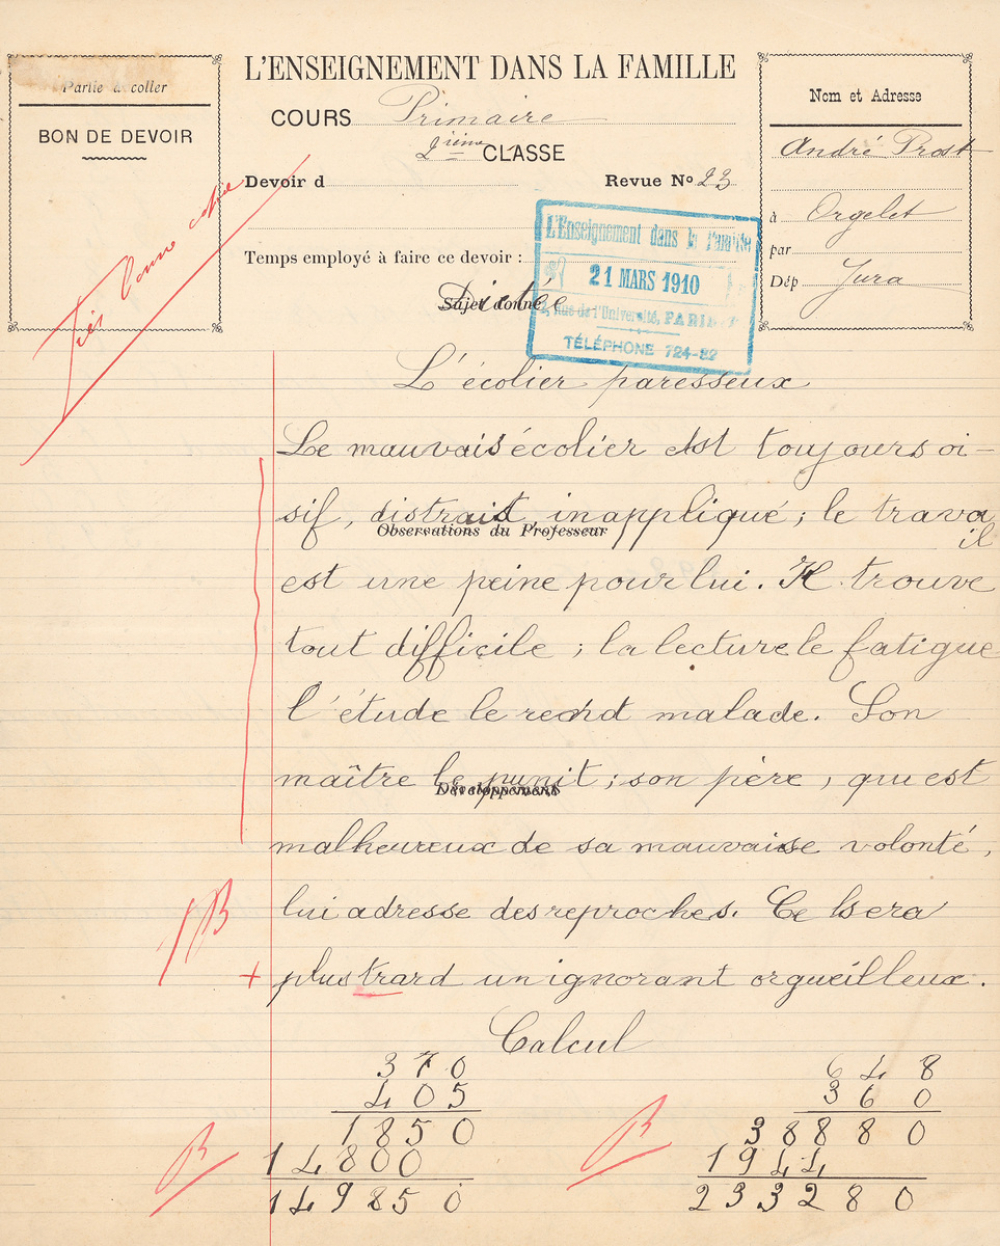 Partie à coller
BON DE DEVOIR
Très bonne copie
L'ENSEIGNEMENT DANS LA FAMILLE
COURS Primaire
2ième CLASSE
Devoir d
Revue No 23
Temps employé à faire ce devoir :
Sujet donné
Dictée
Nom et Adresse
André Prost
à Orgelet
par
Dép Jura
L'Enseignement dans la Famille
21 MARS 1910
Rue de l'Université, PARIS
TÉLÉPHONE 724-82
L'écolier paresseux
Le mauvais écolier est toujours oi-
sif, distrait inappliqué ; le trava
il
Observations du Professeur
est une peine pour lui. Il trouve
tout difficile ; la lecture le fatigue
l'étude le rend malade. Son
maître le punit ; son père, qui est
Développement
malheureux de sa mauvaise volonté,
lui adresse des reproches. Ce sera
TB
+ plus trard un ignorant orgueilleux.
Calcul
370
405
1850
14800
149850
B
648
360
38880
1944
233280
B